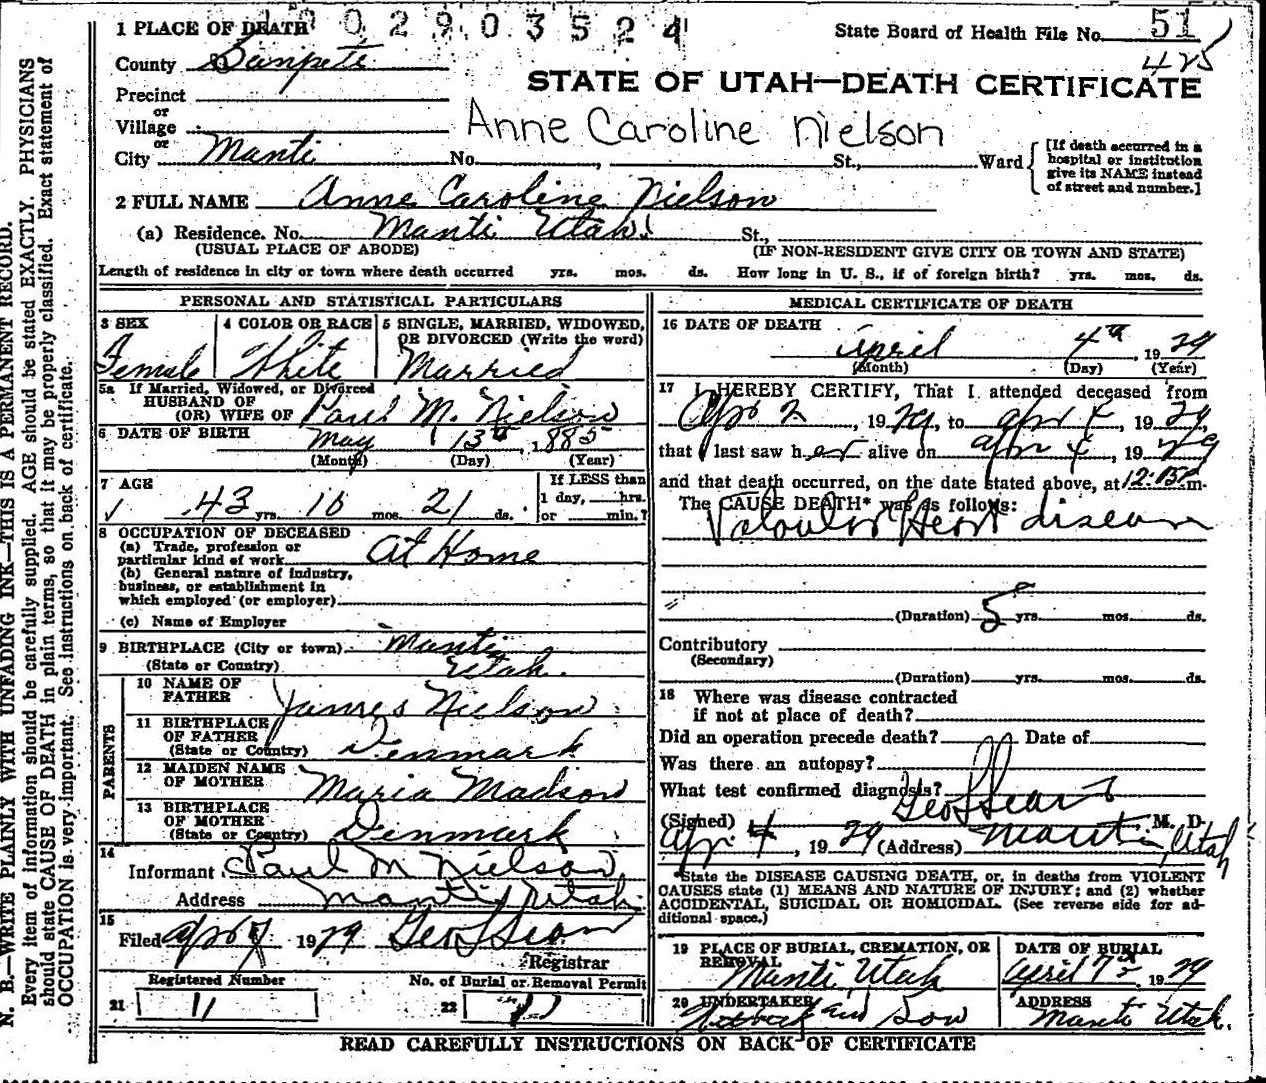 0 0 2 9 0 3 5 2 4
1 PLACE OF DEATH
State Board of Health File No. 51
425
County Sanpete
STATE OF UTAH—DEATH CERTIFICATE
Precinct
or
Village
Anne Caroline Nielson
or
City Manti No. , St., Ward
[If death occurred in a hospital or institution give its NAME instead of street and number.]
2 FULL NAME Anne Caroline Nielson
(a) Residence. No. Manti Utah. St.,
(USUAL PLACE OF ABODE) (IF NON-RESIDENT GIVE CITY OR TOWN AND STATE)
Length of residence in city or town where death occurred yrs. mos. ds. How long in U. S., if of foreign birth? yrs. mos. ds.
PERSONAL AND STATISTICAL PARTICULARS
3 SEX 4 COLOR OR RACE 5 SINGLE, MARRIED, WIDOWED, OR DIVORCED (Write the word)
Female White Married
5a If Married, Widowed, or Divorced
HUSBAND OF
(OR) WIFE OF Paul M. Nielson
6 DATE OF BIRTH May 13th, 1885
(Month) (Day) (Year)
7 AGE If LESS than
43 yrs. 10 mos. 21 ds. 1 day, hrs.
or min.?
8 OCCUPATION OF DECEASED
(a) Trade, profession or
particular kind of work At Home
(b) General nature of industry,
business, or establishment in
which employed (or employer)
(c) Name of Employer
9 BIRTHPLACE (City or town) Manti
(State or Country) Utah.
PARENTS
10 NAME OF
FATHER James Nielson
11 BIRTHPLACE
OF FATHER
(State or Country) Denmark
12 MAIDEN NAME
OF MOTHER Maria Madson
13 BIRTHPLACE
OF MOTHER
(State or Country) Denmark
14
Informant Paul M Nielson
Address Manti, Utah.
15
Filed Apr 1929
Registrar
Registered Number No. of Burial or Removal Permit
21 11 22 11
MEDICAL CERTIFICATE OF DEATH
16 DATE OF DEATH
April 4th, 1929
(Month) (Day) (Year)
17 I HEREBY CERTIFY, That I attended deceased from
Apr 2, 1929, to Apr 4, 1929,
that I last saw her alive on Apr 4, 1929
and that death occurred, on the date stated above, at 12:15 m.
The CAUSE DEATH* was as follows:
Valvular Heart disease
(Duration) 5 yrs. mos. ds.
Contributory
(Secondary)
(Duration) yrs. mos. ds.
18 Where was disease contracted
if not at place of death?
Did an operation precede death? Date of
Was there an autopsy?
What test confirmed diagnosis?
(Signed) M. D.
Apr 4, 1929 (Address) Manti, Utah
*State the DISEASE CAUSING DEATH, or, in deaths from VIOLENT
CAUSES state (1) MEANS AND NATURE OF INJURY; and (2) whether
ACCIDENTAL, SUICIDAL OR HOMICIDAL. (See reverse side for ad-
ditional space.)
19 PLACE OF BURIAL, CREMATION, OR REMOVAL DATE OF BURIAL
Manti Utah April 7th 1929
20 UNDERTAKER ADDRESS
and Son Manti Utah.
READ CAREFULLY INSTRUCTIONS ON BACK OF CERTIFICATE
N. B.—WRITE PLAINLY WITH UNFADING INK—THIS IS A PERMANENT RECORD.
Every item of information should be carefully supplied. AGE should be stated EXACTLY. PHYSICIANS
should state CAUSE OF DEATH in plain terms, so that it may be properly classified. Exact statement of
OCCUPATION is very important. See instructions on back of certificate.